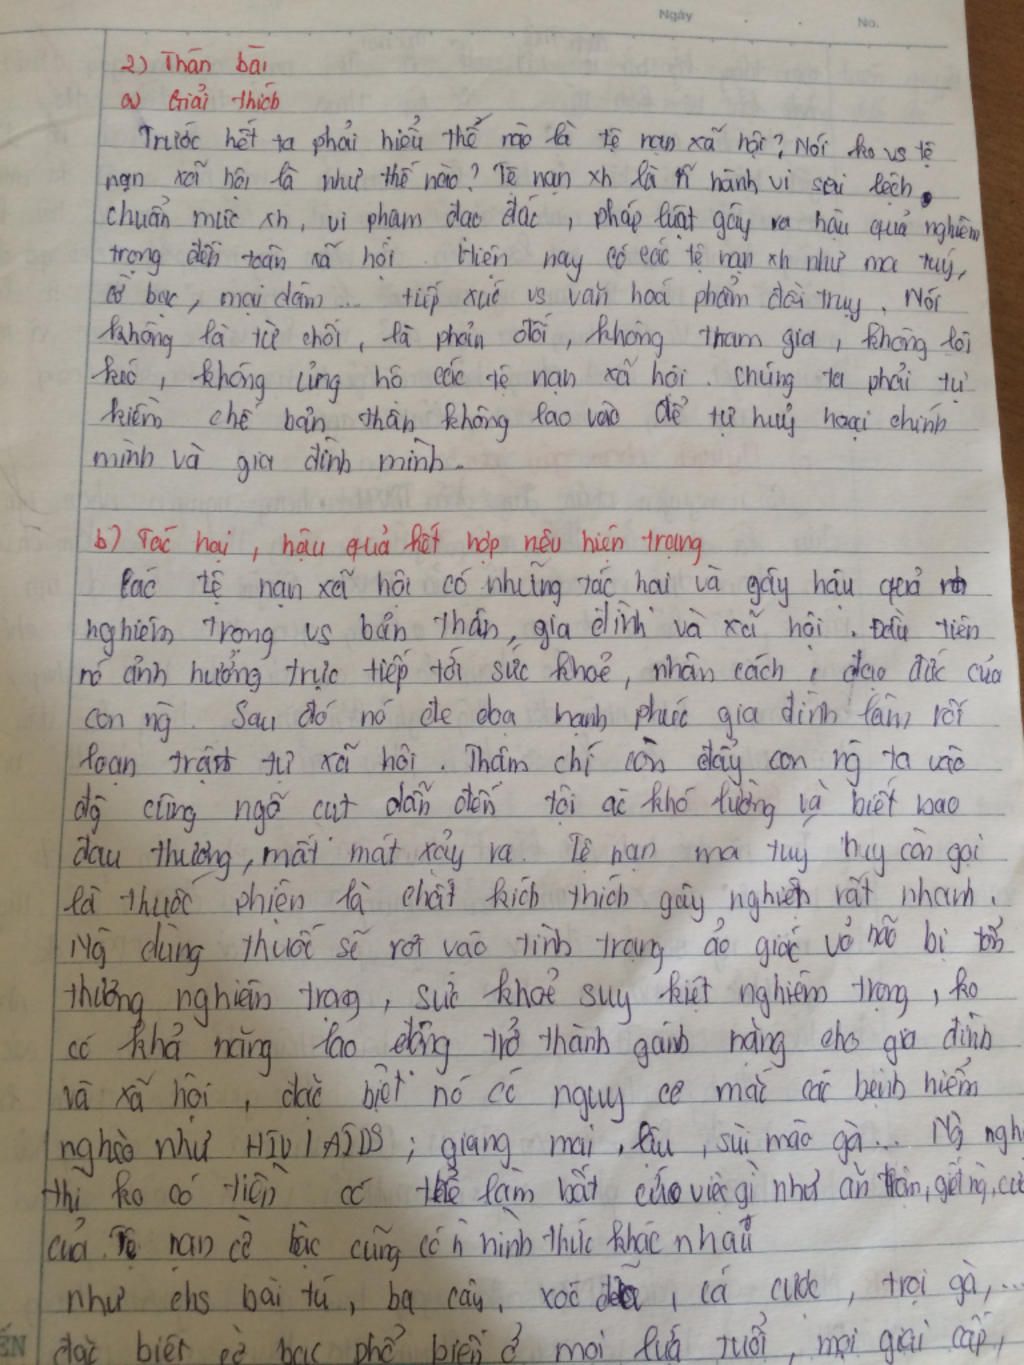 Ngày No.
2) Thân bài
a) Giải thích
Trước hết ta phải hiểu thế nào là tệ nạn xã hội? Nói ko vs tệ
nạn xã hội là như thế nào? Tệ nạn xh là n~ hành vi sai lệch
chuẩn mực xh, vi phạm đạo đức, pháp luật gây ra hậu quả nghiêm
trọng đến toàn xã hội. Hiện nay có các tệ nạn xh như ma tuý,
cờ bạc, mại dâm... tiếp xúc vs văn hoá phẩm đồi truỵ. Nói
không là từ chối, là phản đối, không tham gia, không lôi
kéo, không ủng hộ các tệ nạn xã hội. Chúng ta phải tự
kiềm chế bản thân không lao vào để tự huỷ hoại chính
mình và gia đình mình.
b) Tác hại, hậu quả kết hợp nêu hiện trạng
Các tệ nạn xã hội có những tác hại và gây hậu quả
nghiêm trọng vs bản thân, gia đình và xã hội. Đầu tiên
nó ảnh hưởng trực tiếp tới sức khoẻ, nhân cách, đạo đức của
con ng. Sau đó nó đe doạ hạnh phúc gia đình làm rối
loạn trật tự xã hội. Thậm chí còn đẩy con ng ta vào
độ cùng ngõ cụt dẫn đến tội ác khó lường và biết bao
đau thương, mất mát xảy ra. Tệ nạn ma tuý hay còn gọi
là thuốc phiện là chất kích thích gây nghiện rất nhanh.
Ng dùng thuốc sẽ rơi vào tình trạng ảo giác vỏ não bị tổn
thương nghiêm trọng, sức khoẻ suy kiệt nghiêm trọng, ko
có khả năng lao động trở thành gánh nặng cho gia đình
và xã hội, đặc biệt nó có nguy cơ mắc các bệnh hiểm
nghèo như HIV/AIDS; giang mai, lậu, sùi mào gà... Ng ngh
thì ko có tiền có thể làm bất cứ việc gì như ăn trộm, giết ng, cư
của. Tệ nạn cờ bạc cũng có n` hình thức khác nhau
như chs bài tú, ba cây, xóc đĩa, cá cược, trọi gà,...
đặc biệt cờ bạc phổ biến ở mọi lứa tuổi, mọi giai cấp,